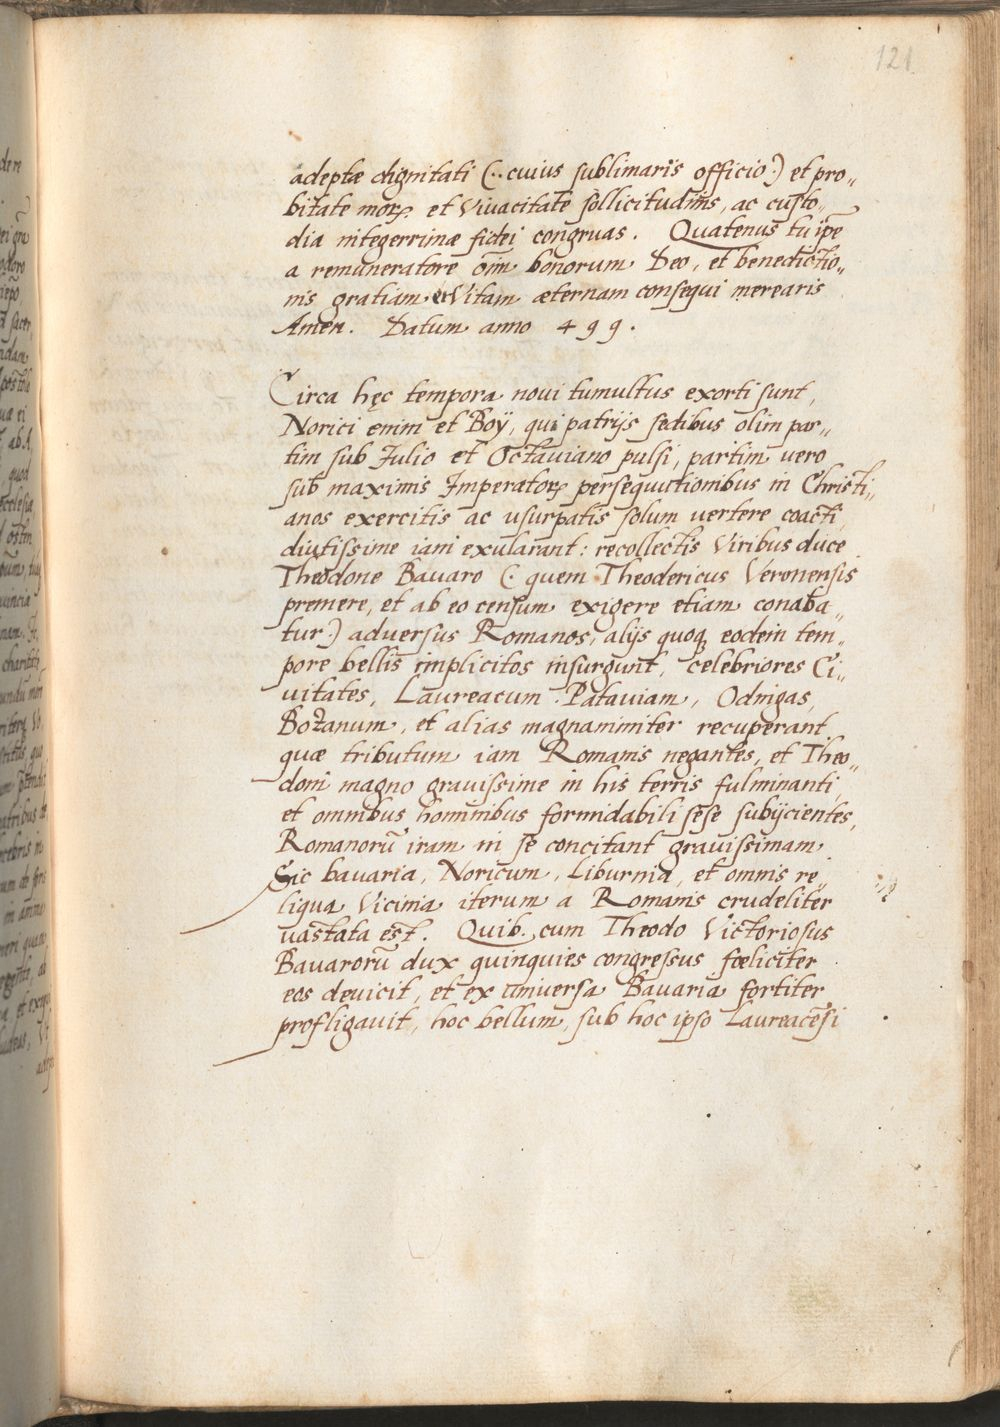 121
adeptæ dignitati (: cuius sublimaris officio :) et pro„
bitate moꝝ et Vivacitate sollicitudinis, ac custo„
dia integerrimæ fidei congruas. Quatenus tu ip̄e
a remuneratore om̄ bonorum Deo, et benedictio„
nis gratiam et Vitam æternam consequi merearis
Amen. Datum anno 499.
Circa hęc tempora novi tumultus exorti sunt,
Norici enim et Boÿ, qui patrijs sedibus olim par„
tim sub Julio et Octaviano pulsi, partim vero
sub maximis Imperatoꝝ persequutionibus in Christi„
anos exercitis ac usurpatis solum vertere coacti,
diutissime iam exularant: recollectis Viribus duce
Theodone Bavaro (: quem Theodericus Veronensis
premere, et ab eo censum exigere etiam conaba„
tur :) adversus Romanos, alijs quoqꝫ eodem tem„
pore bellis implicitos insurgunt, celebriores Ci„
vitates, Laureacum Pataviam, Odrigas,
Bozanum, et alias magnanimiter recuperant,
quæ tributum iam Romanis negantes, et Theo„
doni magno gravissime in his terris fulminanti,
et omnibus hominibus formidabili sese subijcientes,
Romanorū iram in se concitant gravissimam.
Sic bavaria, Noricum, Liburnia, et omnis re„
liqua Vicinia iterum a Romanis crudeliter
vastata est. Quib. cum Theodo Victoriosus
Bavarorū dux quinquies congressus fœliciter
eos devicit, et ex universa Bavaria fortiter
profligavit, hoc bellum, sub hoc ipso Laureacēsi